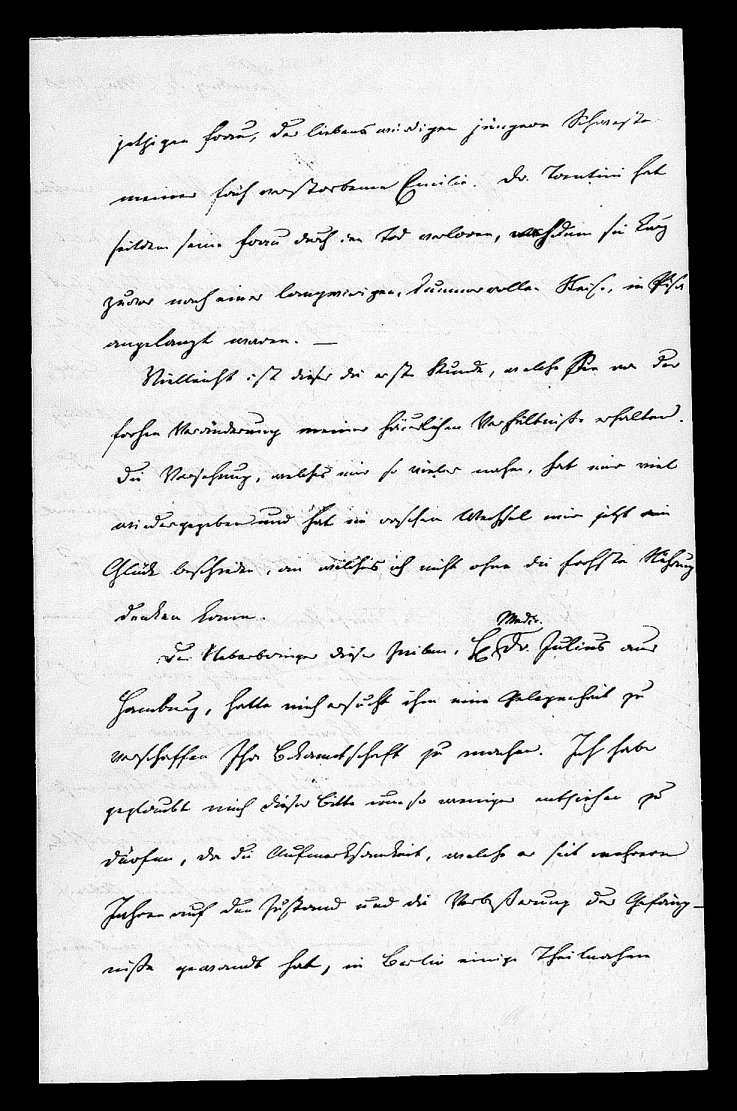 jetzigen Frau, der liebenswürdigen jüngern Schwester
meiner früh verstorbenen Emilie. Dr. Tantini hat
seitdem seine Frau durch den Tod verloren, nachdem sie kurz
zuvor nach einer langwierigen, kummervollen Reise, in Pisa
angelangt waren. —
Vielleicht ist dieses die erste Kunde, welche Sie von der
frohen Veränderung meiner häuslichen Verhältnisse erhalten.
Die Vorsehung, welche mir so vieles nahm, hat mir viel
wiedergegeben und hat in raschem Wechsel mir jetzt ein
Glück beschieden, an welches ich nicht ohne die froheste Rührung
denken kann.
Der Ueberbringer dieser Zeilen, H. Med. Dr. Julius aus
Hamburg, hatte mich ersucht ihm eine Gelegenheit zu
verschaffen Ihre Bekanntschaft zu machen. Ich habe
geglaubt mich dieser Bitte um so weniger entziehen zu
dürfen, da die Aufmerksamkeit, welche er seit mehreren
Jahren auf den Zustand und die Verbeßerung der Gefäng-
niße gewandt hat, in Berlin einige Theilnahme